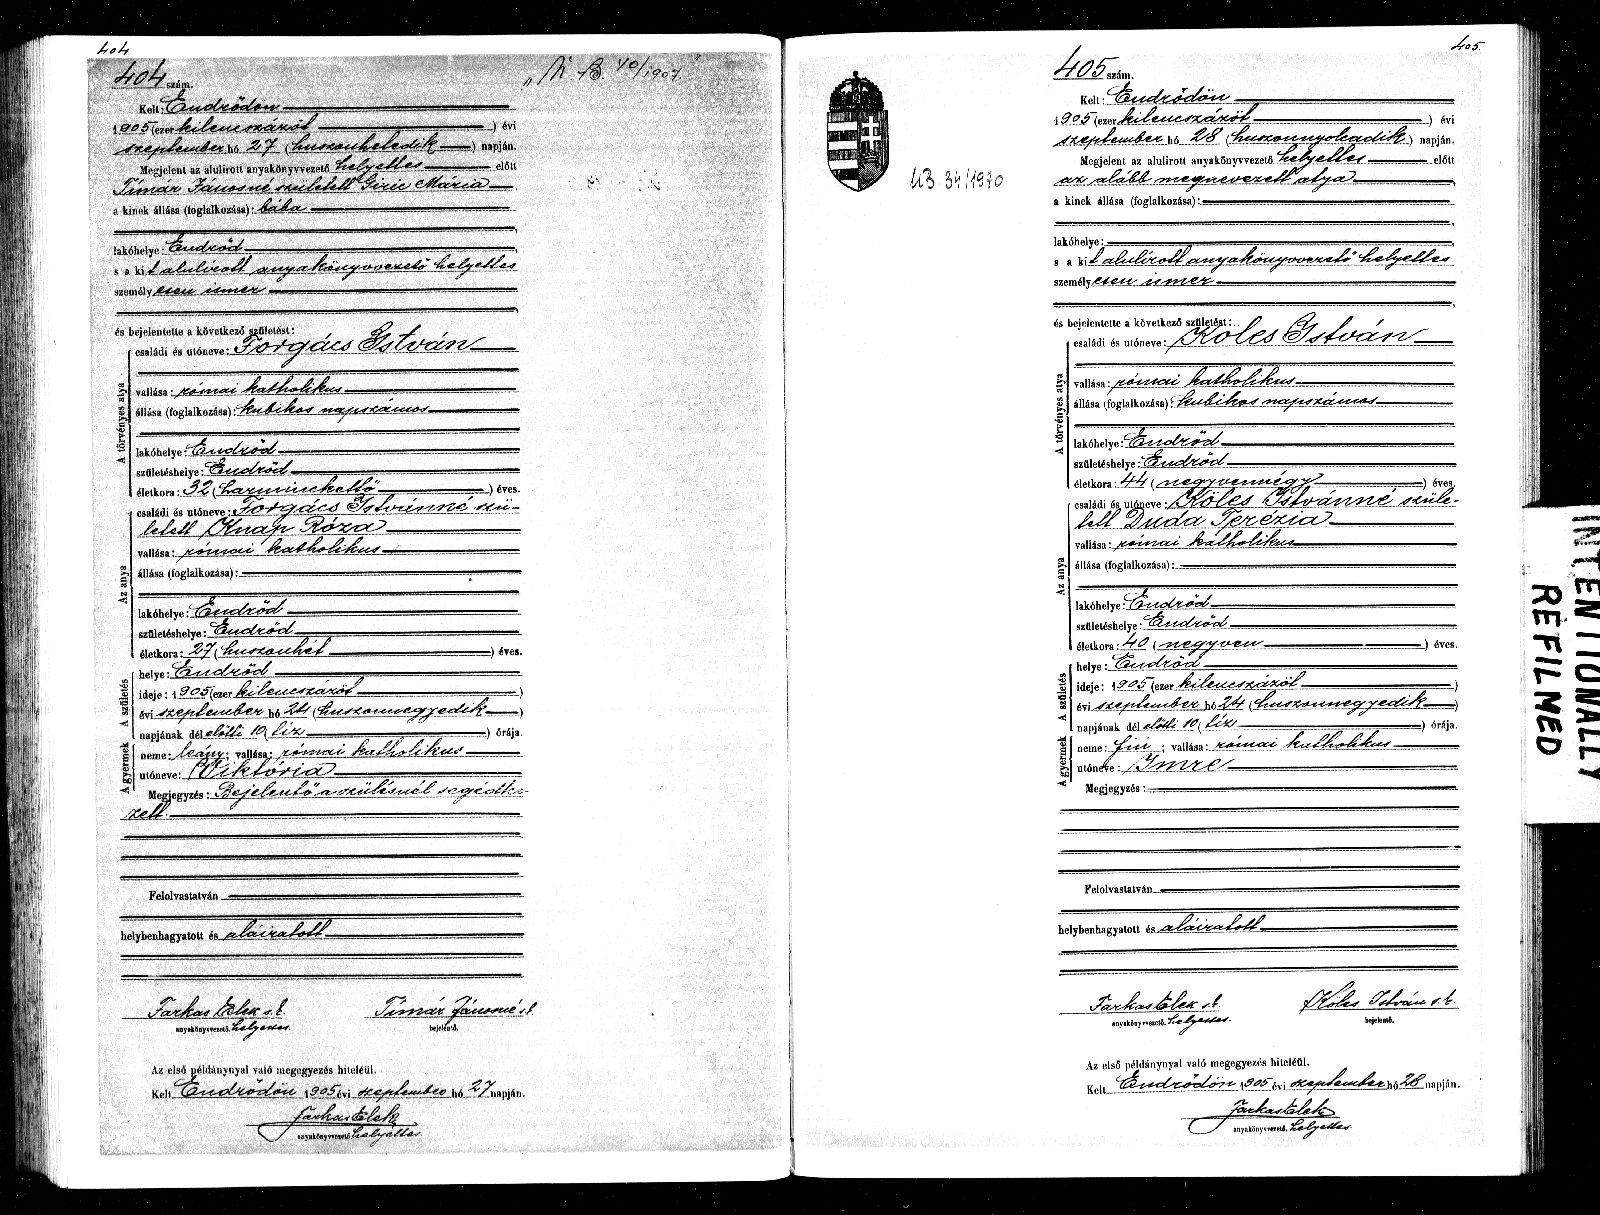 404
404 szám.
Kelt: Endrődön
1905 (ezer kilencszázöt ) évi
szeptember hó 27 (huszonhetedik ) napján.
Megjelent az alulirott anyakönyvvezető helyettes előtt
Tímár Jánosné született Giric Mária
a kinek állása (foglalkozása): bába
lakóhelye: Endrőd
s a kit alulirott anyakönyvvezető helyettes
személyesen ismer
és bejelentette a következő születést:
A törvényes atya
családi és utóneve: Forgács István
vallása: római katholikus
állása (foglalkozása): kubikos napszámos
lakóhelye: Endrőd
születéshelye: Endrőd
életkora: 32 (harminckettő ) éves.
Az anya
családi és utóneve: Forgács Istvánné szü-
letett Knap Róza
vallása: római katholikus
állása (foglalkozása):
lakóhelye: Endrőd
születéshelye: Endrőd
életkora: 27 (huszonhét ) éves.
A születés
helye: Endrőd
ideje: 1905 (ezer kilencszázöt )
évi szeptember hó 24 (huszonnegyedik )
napjának dél előtti 10 (tíz ) órája.
A gyermek
neme: leány; vallása: római katholikus
utóneve: Viktória
Megjegyzés: Bejelentő a szülésnél segédke-
zett.
Felolvastatván
helybenhagyatott és aláíratott
Farkas Elek s.k. Tímár Jánosné s.k.
anyakönyvvezető. helyettes. bejelentő.
Az első példánynyal való megegyezés hiteléül.
Kelt Endrődön 1905 évi szeptember hó 27 napján.
Farkas Elek
anyakönyvvezető helyettes.
40/1907
405.
405 szám.
ÚB 34/1970
Kelt: Endrődön
1905 (ezer kilencszázöt ) évi
szeptember hó 28 (huszonnyolcadik ) napján.
Megjelent az alulirott anyakönyvvezető helyettes előtt
az alább megnevezett atya
a kinek állása (foglalkozása):
lakóhelye:
s a kit alulirott anyakönyvvezető helyettes
személyesen ismer
és bejelentette a következő születést:
A törvényes atya
családi és utóneve: Koles István
vallása: római katholikus
állása (foglalkozása): kubikos napszámos
lakóhelye: Endrőd
születéshelye: Endrőd
életkora: 44 (negyvennégy ) éves.
Az anya
családi és utóneve: Köles Istvánné szüle-
tett Duda Terézia
vallása: római katholikus
állása (foglalkozása):
lakóhelye: Endrőd
születéshelye: Endrőd
életkora: 40 (negyven ) éves.
A születés
helye: Endrőd
ideje: 1905 (ezer kilencszázöt )
évi szeptember hó 24 (huszonnegyedik )
napjának dél előtti 10 (tíz ) órája.
A gyermek
neme: fiu ; vallása: római katholikus
utóneve: Imre
Megjegyzés:
Felolvastatván
helybenhagyatott és aláíratott
Farkas Elek s.k. Köles István s.k.
anyakönyvvezető. helyettes. bejelentő.
Az első példánynyal való megegyezés hiteléül.
Kelt Endrődön 1905 évi szeptember hó 28 napján.
Farkas Elek
anyakönyvvezető. helyettes.
INTENTIONALLY
REFILMED